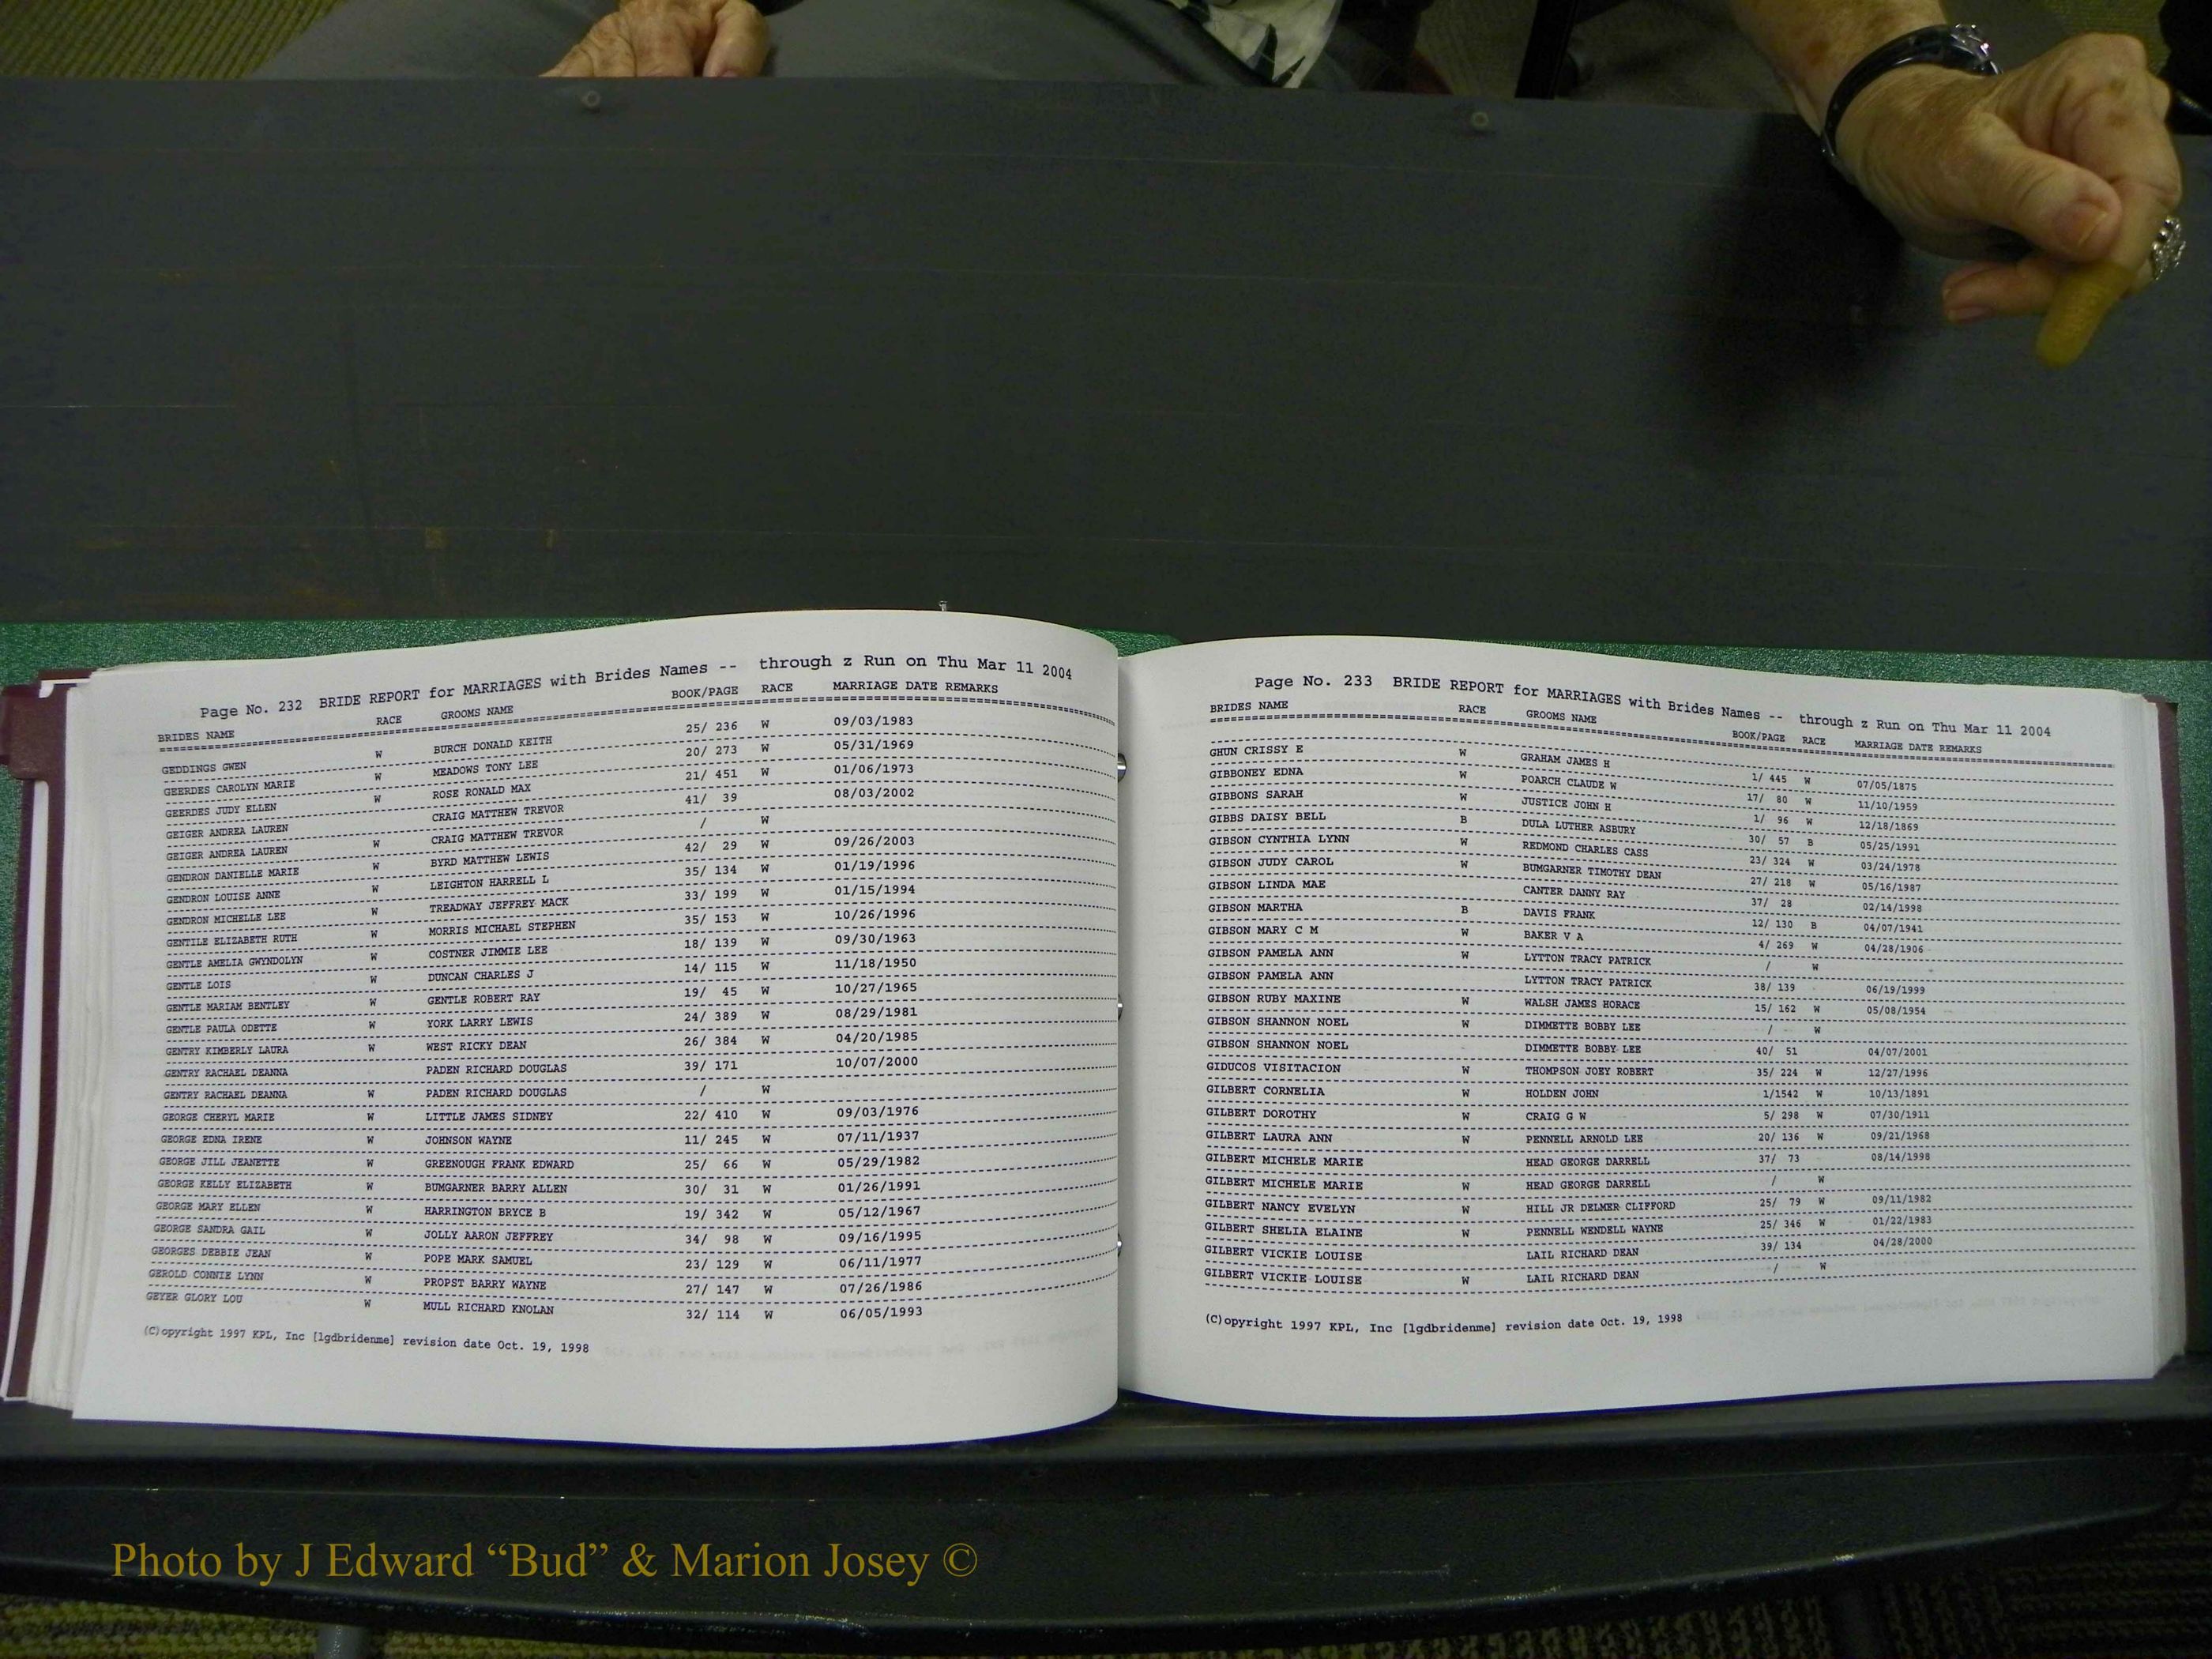 Page No. 232 BRIDE REPORT for MARRIAGES with Brides Names -- through z Run on Thu Mar 11 2004
BRIDES NAME RACE GROOMS NAME BOOK/PAGE RACE MARRIAGE DATE REMARKS
GEDDINGS GWEN W BURCH DONALD KEITH 25/ 236 W 09/03/1983
GEERDES CAROLYN MARIE W MEADOWS TONY LEE 20/ 273 W 05/31/1969
GEERDES JUDY ELLEN W ROSE RONALD MAX 21/ 451 W 01/06/1973
GEIGER ANDREA LAUREN CRAIG MATTHEW TREVOR 41/ 39 08/03/2002
GEIGER ANDREA LAUREN W CRAIG MATTHEW TREVOR / W
GENDRON DANIELLE MARIE W BYRD MATTHEW LEWIS 42/ 29 W 09/26/2003
GENDRON LOUISE ANNE W LEIGHTON HARRELL L 35/ 134 W 01/19/1996
GENDRON MICHELLE LEE W TREADWAY JEFFREY MACK 33/ 199 W 01/15/1994
GENTILE ELIZABETH RUTH W MORRIS MICHAEL STEPHEN 35/ 153 W 10/26/1996
GENTLE AMELIA GWYNDOLYN W COSTNER JIMMIE LEE 18/ 139 W 09/30/1963
GENTLE LOIS W DUNCAN CHARLES J 14/ 115 W 11/18/1950
GENTLE MARIAM BENTLEY W GENTLE ROBERT RAY 19/ 45 W 10/27/1965
GENTLE PAULA ODETTE W YORK LARRY LEWIS 24/ 389 W 08/29/1981
GENTRY KIMBERLY LAURA W WEST RICKY DEAN 26/ 384 W 04/20/1985
GENTRY RACHAEL DEANNA PADEN RICHARD DOUGLAS 39/ 171 10/07/2000
GENTRY RACHAEL DEANNA W PADEN RICHARD DOUGLAS / W
GEORGE CHERYL MARIE W LITTLE JAMES SIDNEY 22/ 410 W 09/03/1976
GEORGE EDNA IRENE W JOHNSON WAYNE 11/ 245 W 07/11/1937
GEORGE JILL JEANETTE W GREENOUGH FRANK EDWARD 25/ 66 W 05/29/1982
GEORGE KELLY ELIZABETH W BUMGARNER BARRY ALLEN 30/ 31 W 01/26/1991
GEORGE MARY ELLEN W HARRINGTON BRYCE B 19/ 342 W 05/12/1967
GEORGE SANDRA GAIL W JOLLY AARON JEFFREY 34/ 98 W 09/16/1995
GEORGES DEBBIE JEAN W POPE MARK SAMUEL 23/ 129 W 06/11/1977
GEROLD CONNIE LYNN W PROPST BARRY WAYNE 27/ 147 W 07/26/1986
GEYER GLORY LOU W MULL RICHARD KNOLAN 32/ 114 W 06/05/1993
(C)opyright 1997 KPL, Inc [lgdbridenme] revision date Oct. 19, 1998
Page No. 233 BRIDE REPORT for MARRIAGES with Brides Names -- through z Run on Thu Mar 11 2004
BRIDES NAME RACE GROOMS NAME BOOK/PAGE RACE MARRIAGE DATE REMARKS
GHUN CRISSY E W GRAHAM JAMES H 1/ 445 W 07/05/1875
GIBBONEY EDNA W POARCH CLAUDE W 17/ 80 W 11/10/1959
GIBBONS SARAH W JUSTICE JOHN H 1/ 96 W 12/18/1869
GIBBS DAISY BELL B DULA LUTHER ASBURY 30/ 57 B 05/25/1991
GIBSON CYNTHIA LYNN W REDMOND CHARLES CASS 23/ 324 W 03/24/1978
GIBSON JUDY CAROL W BUMGARNER TIMOTHY DEAN 27/ 218 W 05/16/1987
GIBSON LINDA MAE CANTER DANNY RAY 37/ 28 02/14/1998
GIBSON MARTHA B DAVIS FRANK 12/ 130 B 04/07/1941
GIBSON MARY C M W BAKER V A 4/ 269 W 04/28/1906
GIBSON PAMELA ANN W LYTTON TRACY PATRICK / W
GIBSON PAMELA ANN LYTTON TRACY PATRICK 38/ 139 06/19/1999
GIBSON RUBY MAXINE W WALSH JAMES HORACE 15/ 162 W 05/08/1954
GIBSON SHANNON NOEL W DIMMETTE BOBBY LEE / W
GIBSON SHANNON NOEL DIMMETTE BOBBY LEE 40/ 51 04/07/2001
GIDUCOS VISITACION W THOMPSON JOEY ROBERT 35/ 224 W 12/27/1996
GILBERT CORNELIA W HOLDEN JOHN 1/1542 W 10/13/1891
GILBERT DOROTHY W CRAIG G W 5/ 298 W 07/30/1911
GILBERT LAURA ANN W PENNELL ARNOLD LEE 20/ 136 W 09/21/1968
GILBERT MICHELE MARIE HEAD GEORGE DARRELL 37/ 73 08/14/1998
GILBERT MICHELE MARIE W HEAD GEORGE DARRELL / W
GILBERT NANCY EVELYN W HILL JR DELMER CLIFFORD 25/ 79 W 09/11/1982
GILBERT SHELIA ELAINE W PENNELL WENDELL WAYNE 25/ 346 W 01/22/1983
GILBERT VICKIE LOUISE LAIL RICHARD DEAN 39/ 134 04/28/2000
GILBERT VICKIE LOUISE W LAIL RICHARD DEAN / W
(C)opyright 1997 KPL, Inc [lgdbridenme] revision date Oct. 19, 1998
Photo by J Edward “Bud” & Marion Josey ©